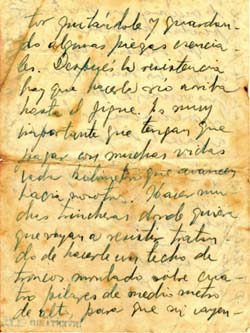 tor quitándole y guardan-
do algunas piezas esencia-
les. Después la resistencia
hay que hacerla río arriba
hasta el jigue. Es muy
importante que tengan que
pagar con muchas vidas
cada kilómetro que avancen
hacia nosotros. Hacer mu-
chas trincheras donde quiera
que vayan a resistir tratan-
do de hacerle un techo de
troncos montado sobre cua-
tro pilares de medio metro
de alto, para que si cayen-